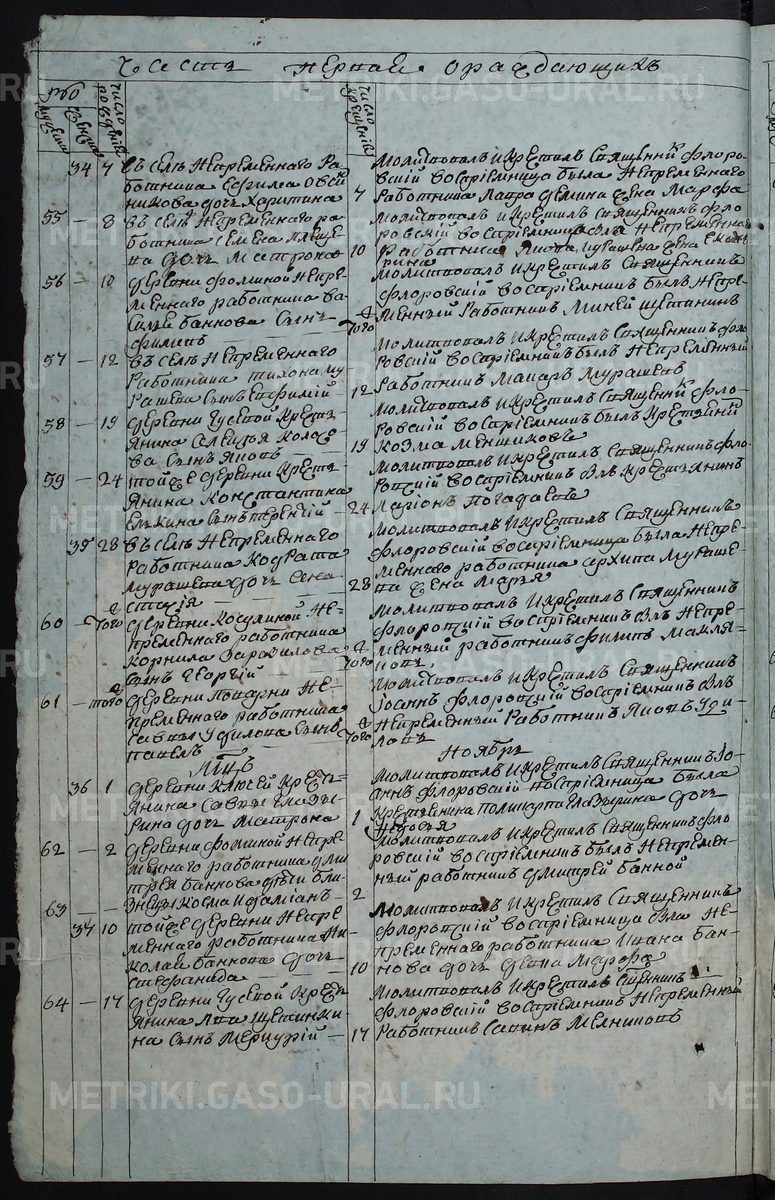 Часть первая о раждающихся
число рождений
мужеска
женска
число крещений
34 7 въ селѣ непременнаго ра-
ботника
никова дочь Харитина
Молитвовалъ и крестилъ священникъ Флоро-
вскій воспріемница была непременнаго
7 работника жена Марфа
55 — 8 въ селѣ непременнаго ра-
ботника Семена
на дочь Матрона
Молитвовалъ и крестилъ священникъ Фло-
ровскій воспріемница была непременнаго
10 работника Якова Мурашева жена
56 — 10 деревни Фоминой непре-
меннаго работника Ва-
силья Баннова сынъ
Филипъ
Молитвовалъ и крестилъ священникъ
Флоровскій воспріемникъ былъ непре-
того менный работникъ Миней Щеткинъ
57 — 12 въ селѣ непременнаго
работника Тихона Му-
рашева сынъ Ефимій
Молитвовалъ и крестилъ священникъ Фло-
ровскій воспріемникъ былъ непременный
12 работникъ Макаръ Мурашевъ
58 — 19 деревни Гусевой кресть-
янина Колосо-
ва сынъ Яковъ
Молитвовалъ и крестилъ священникъ Фло-
ровскій воспріемникъ былъ крестьянинъ
19 Козма Меншиковъ
59 — 24 той же деревни кресть-
янина Константина
Елькина сынъ Терентій
Молитвовалъ и крестилъ священникъ Фло-
ровскій воспріемникъ былъ крестьянинъ
24 Ларіонъ Погадаевъ
35 28 въ селѣ непременнаго
работника Кодрата
Мурашева дочь Ана-
стасія
Молитвовалъ и крестилъ священникъ
Флоровскій воспріемница была непре-
меннаго работника Архипа Мураше-
28 ва жена Марья
60 — того деревни Косулиной не-
пременнаго работника
Корнила
сынъ Георгій
Молитвовалъ и крестилъ священникъ
Флоровскій воспріемникъ былъ непре-
менный работникъ Филипъ Макля-
того ковъ
61 — того деревни Поварни не-
пременнаго работника
Савы сынъ
Павелъ
Молитвовалъ и крестилъ священникъ
Іоаннъ Флоровскій воспріемникъ былъ
того непременный работникъ Яковъ
Ноябрь
36 1 деревни Ключей кресть-
янина Савы Глазы-
рина дочь Матрона
Молитвовалъ и крестилъ священникъ Іо-
аннъ Флоровскій воспріемница была
1 крестьянина Поликарпа Глазырина дочь
Федосья
62 — 2 деревни Фоминой непре-
меннаго работника Дми-
трея Баннова дѣти бли-
63 — знецы Косма и Даміанъ
Молитвовалъ и крестилъ священникъ Фло-
ровскій воспріемникъ былъ непремен-
ный работникъ Дмитрей Банной
2
37 10 той же деревни непре-
меннаго работника Ни-
колая Баннова дочь
Стефанида
Молитвовалъ и крестилъ священникъ
Флоровскій воспріемница была не-
пременнаго работника Ивана Бан-
10 нова дочь девка Марфа
64 — 17 деревни Гусевой кресть-
янина Щетники-
на сынъ Меркурій
Молитвовалъ и крестилъ священникъ
Флоровскій воспріемникъ непременный
17 работникъ Савинъ Мелниковъ
METRIKI.GASO-URAL.RU